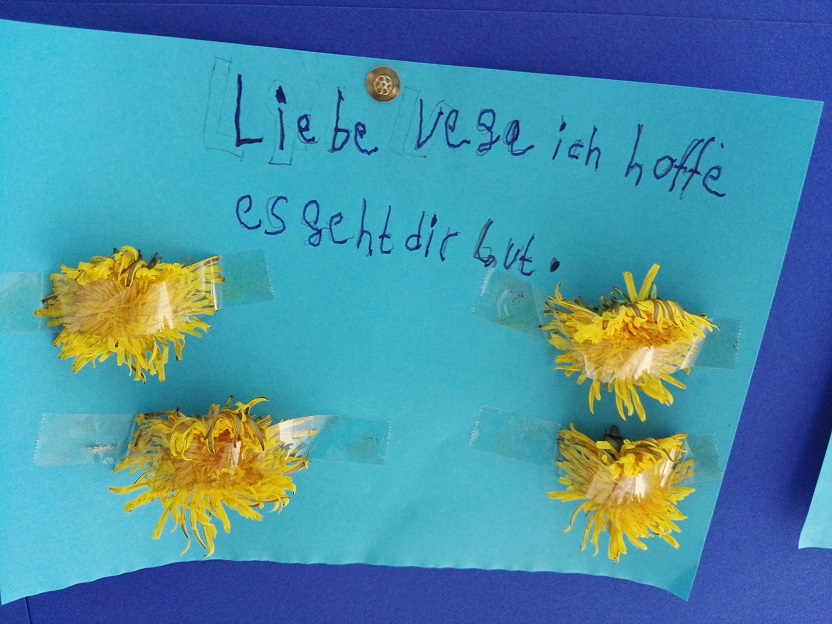 Liebe Vega ich hoffe
es geht dir gut.